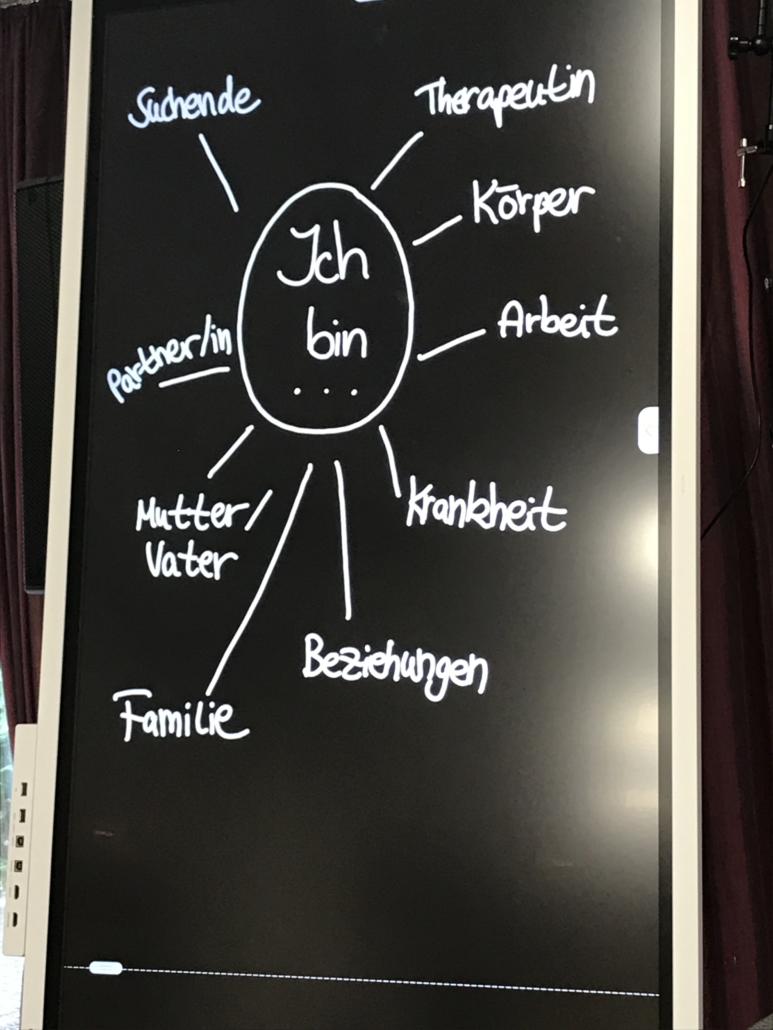 Suchende
Therapeutin
Körper
Ich
bin
...
Arbeit
Partner/in
Mutter/
Vater
Krankheit
Beziehungen
Familie